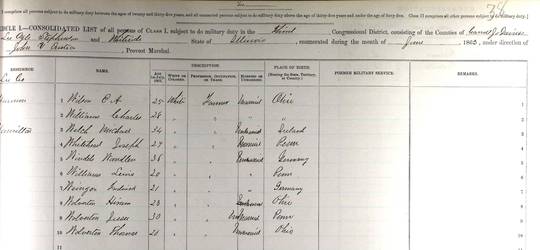 I comprise all persons subject to do military duty between the ages of twenty and thirty-five years, and all unmarried persons subject to do military duty above the age of thirty-five years and under the age of forty-five. Class II comprises all other persons subject to do military duty.]
DULE I.—CONSOLIDATED LIST of all persons of CLASS I, subject to do military duty in the Third Congressional District, consisting of the Counties of
Lee Ogle Stephenson and Whiteside State of Illinois, enumerated during the month of June 1863, under direction of
John V Eustace Provost Marshal.
RESIDENCE. NAME. DESCRIPTION. PLACE OF BIRTH. FORMER MILITARY SERVICE. REMARKS.
AGE 1st July, 1863. WHITE OR COLORED. PROFESSION, OCCUPATION, OR TRADE. MARRIED OR UNMARRIED. (Naming the State, Territory, or Country.)
Lee Co
1 Wilson E A 25 White Farmer Married Ohio
2 Williams Charles 28 " " " "
Hamilton 3 Welch Michael 34 " " Unmarried Ireland
4 Whitehead Joseph 27 " " Married Penn
5 Wendel 36 " " Unmarried Germany
6 Williams Lewis 20 " " " Penn
7 Frederick 21 " " " Germany
8 Wolverton Hiram 23 " " Ohio
9 Wolverton Jesse 30 " " Penn
10 Wolverton Thomas 21 " " Unmarried Ohio
11